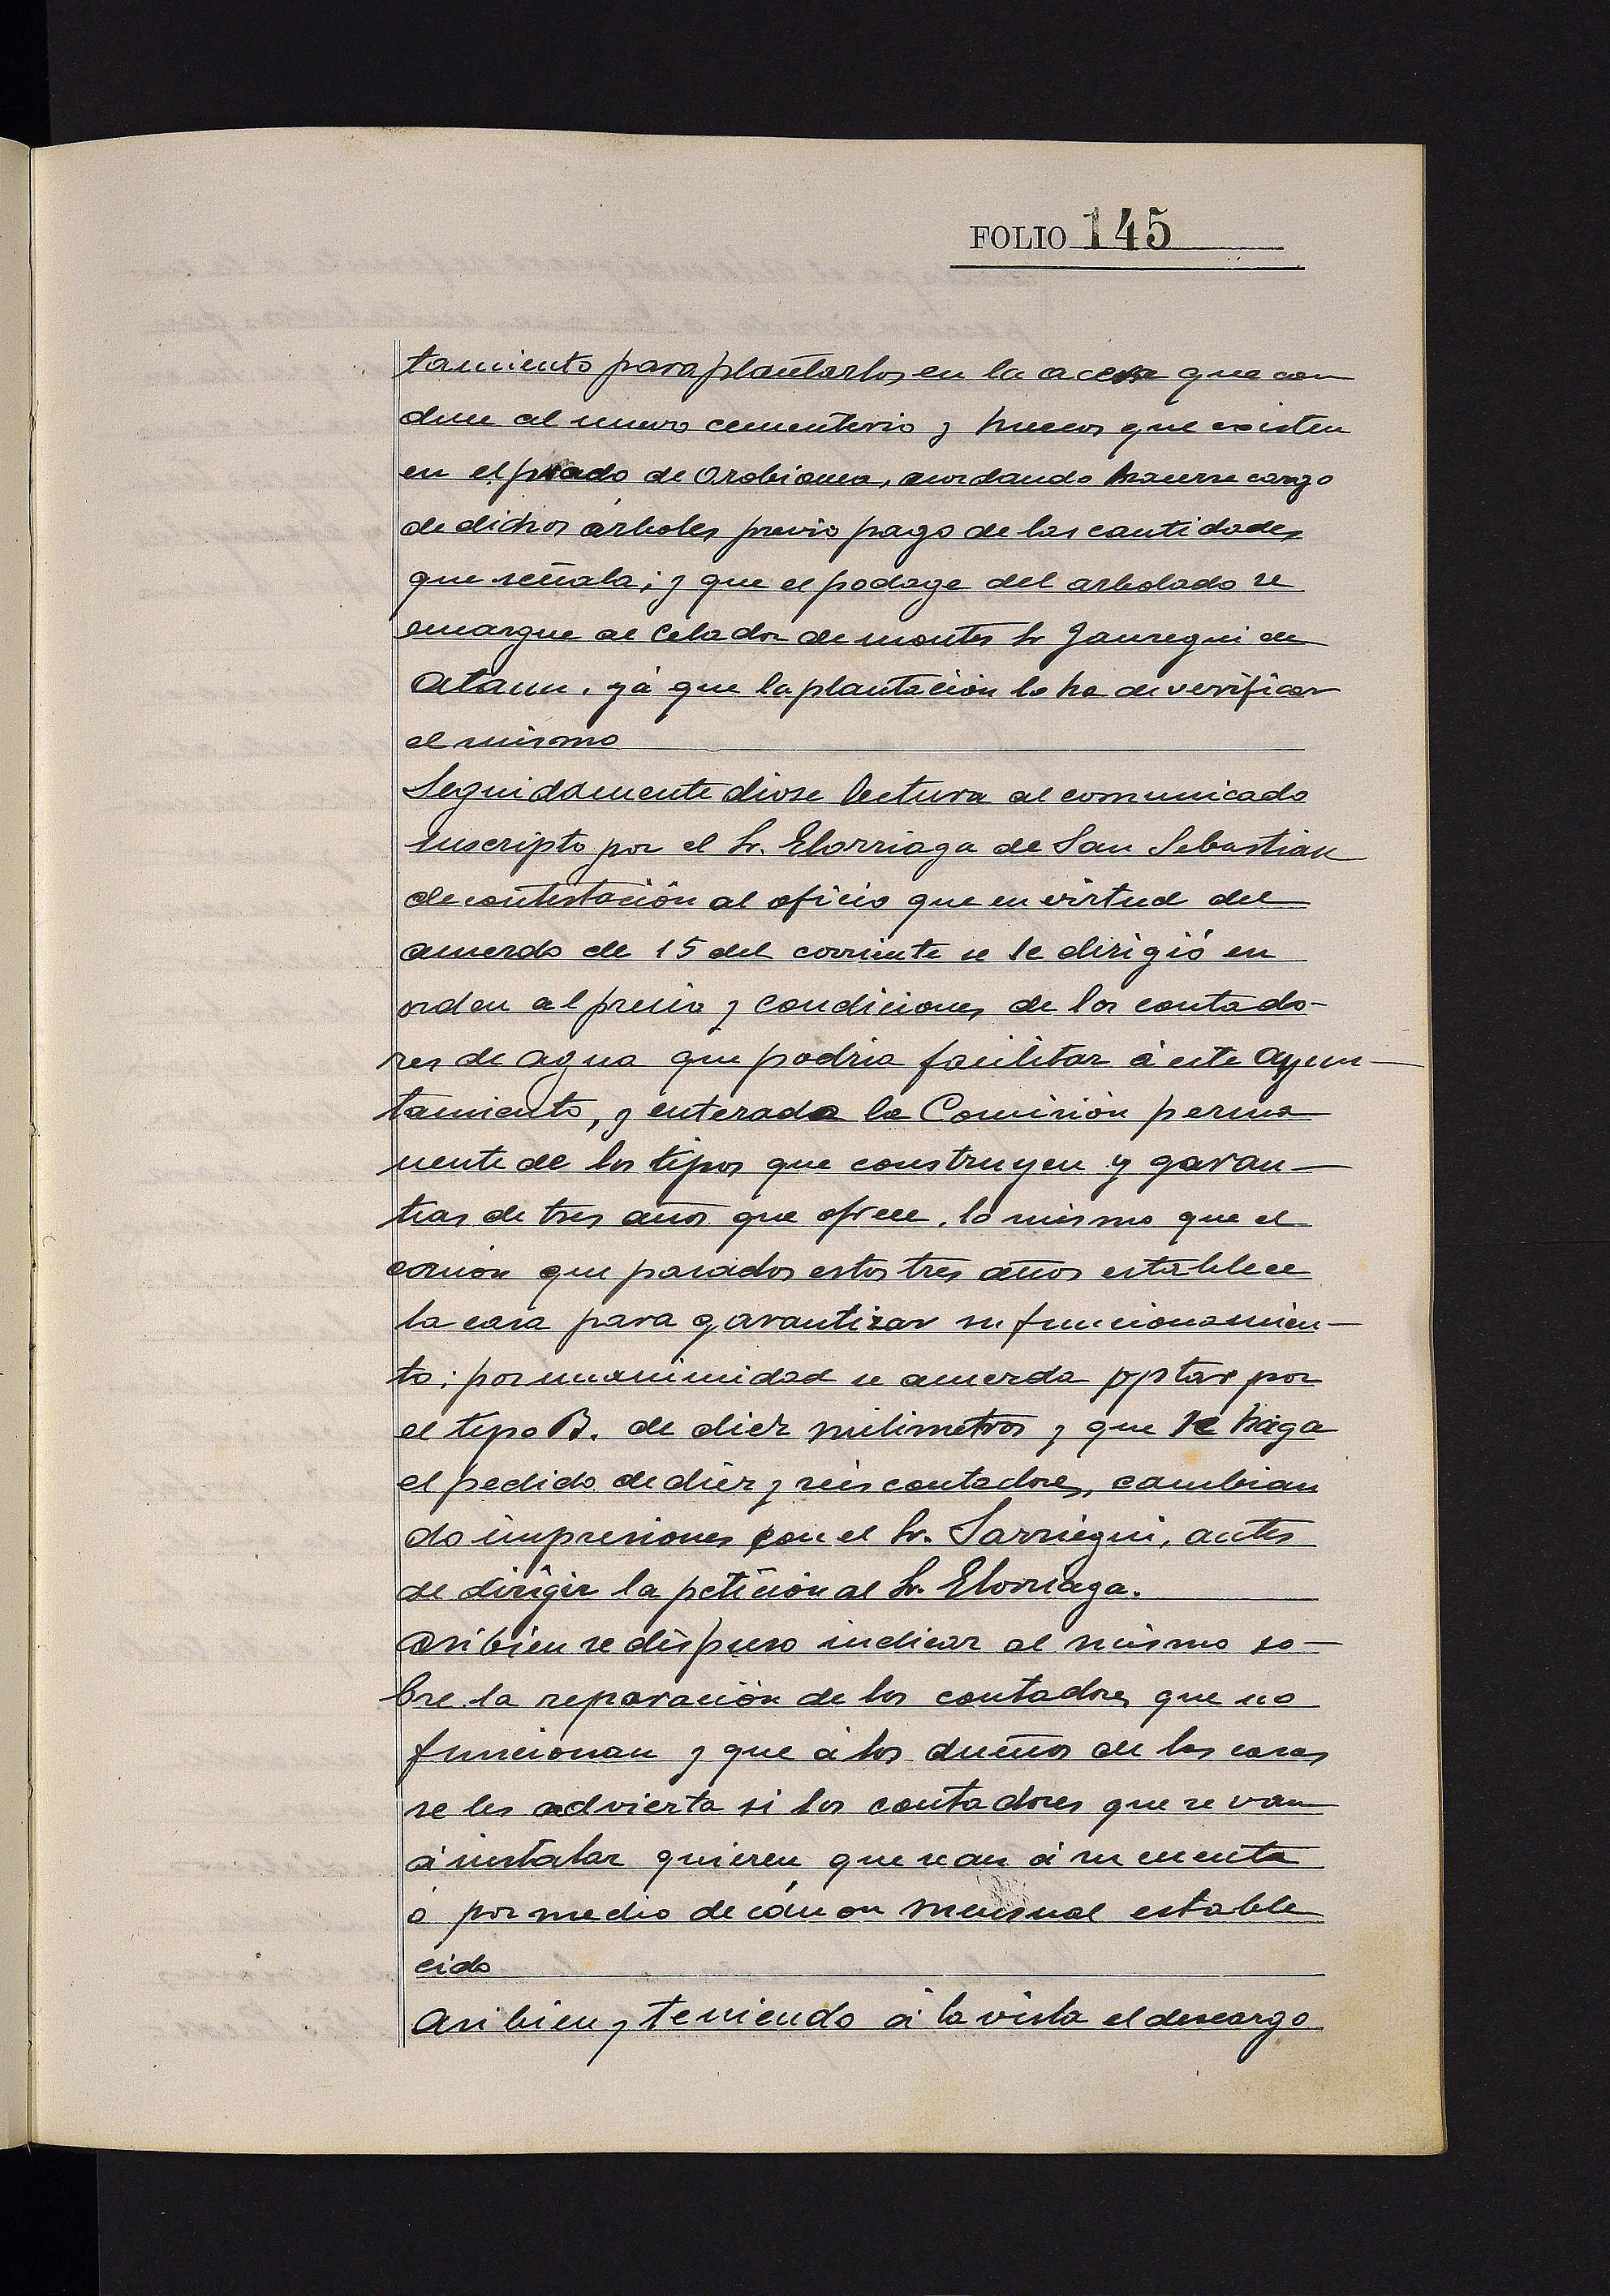 FOLIO 145
tamiento para plantarlos en la acera que con
duce al nuevo cementerio y huecos que existen
en el prado de Orobioma, acordando hacerse cargo
de dichos árboles previo pago de las cantidades
que señala; y que el podage del arbolado se
encargue al Celador de montes Sr Jauregui de
Ataun, yá que la plantación lo ha de verificar
el mismo
Seguidamente diose lectura al comunicado
suscripto por el Sr. Elorriaga de San Sebastian
de contestación al oficio que en virtud del
acuerdo de 15 del corriente se le dirigió en
orden al precio y condiciones de los contado-
res de agua que podria facilitar á este Ayun-
tamiento, y enterada la Comisión perma
nente de los tipos que construyen y garan-
tias de tres años que ofrece, lo mismo que el
canon que pasados estos tres años establece
la casa para garantizar su funcionamien-
to; por unanimidad se acuerda optar por
el tipo B. de diez milimetros y que se haga
el pedido de diez y seis contadores, cambian
do impresiones con el Sr. Sarriegui, antes
de dirigir la petición al Sr. Elorriaga.
Asi bien se dispuso indicar al mismo so-
bre la reparación de los contadores que no
funcionan y que á los dueños de las casas
se les advierta si los contadores que se van
á instalar quieren que sean á su cuenta
ó por medio de cánon mensual estable
cido
Asi bien y teniendo á la vista el descargo